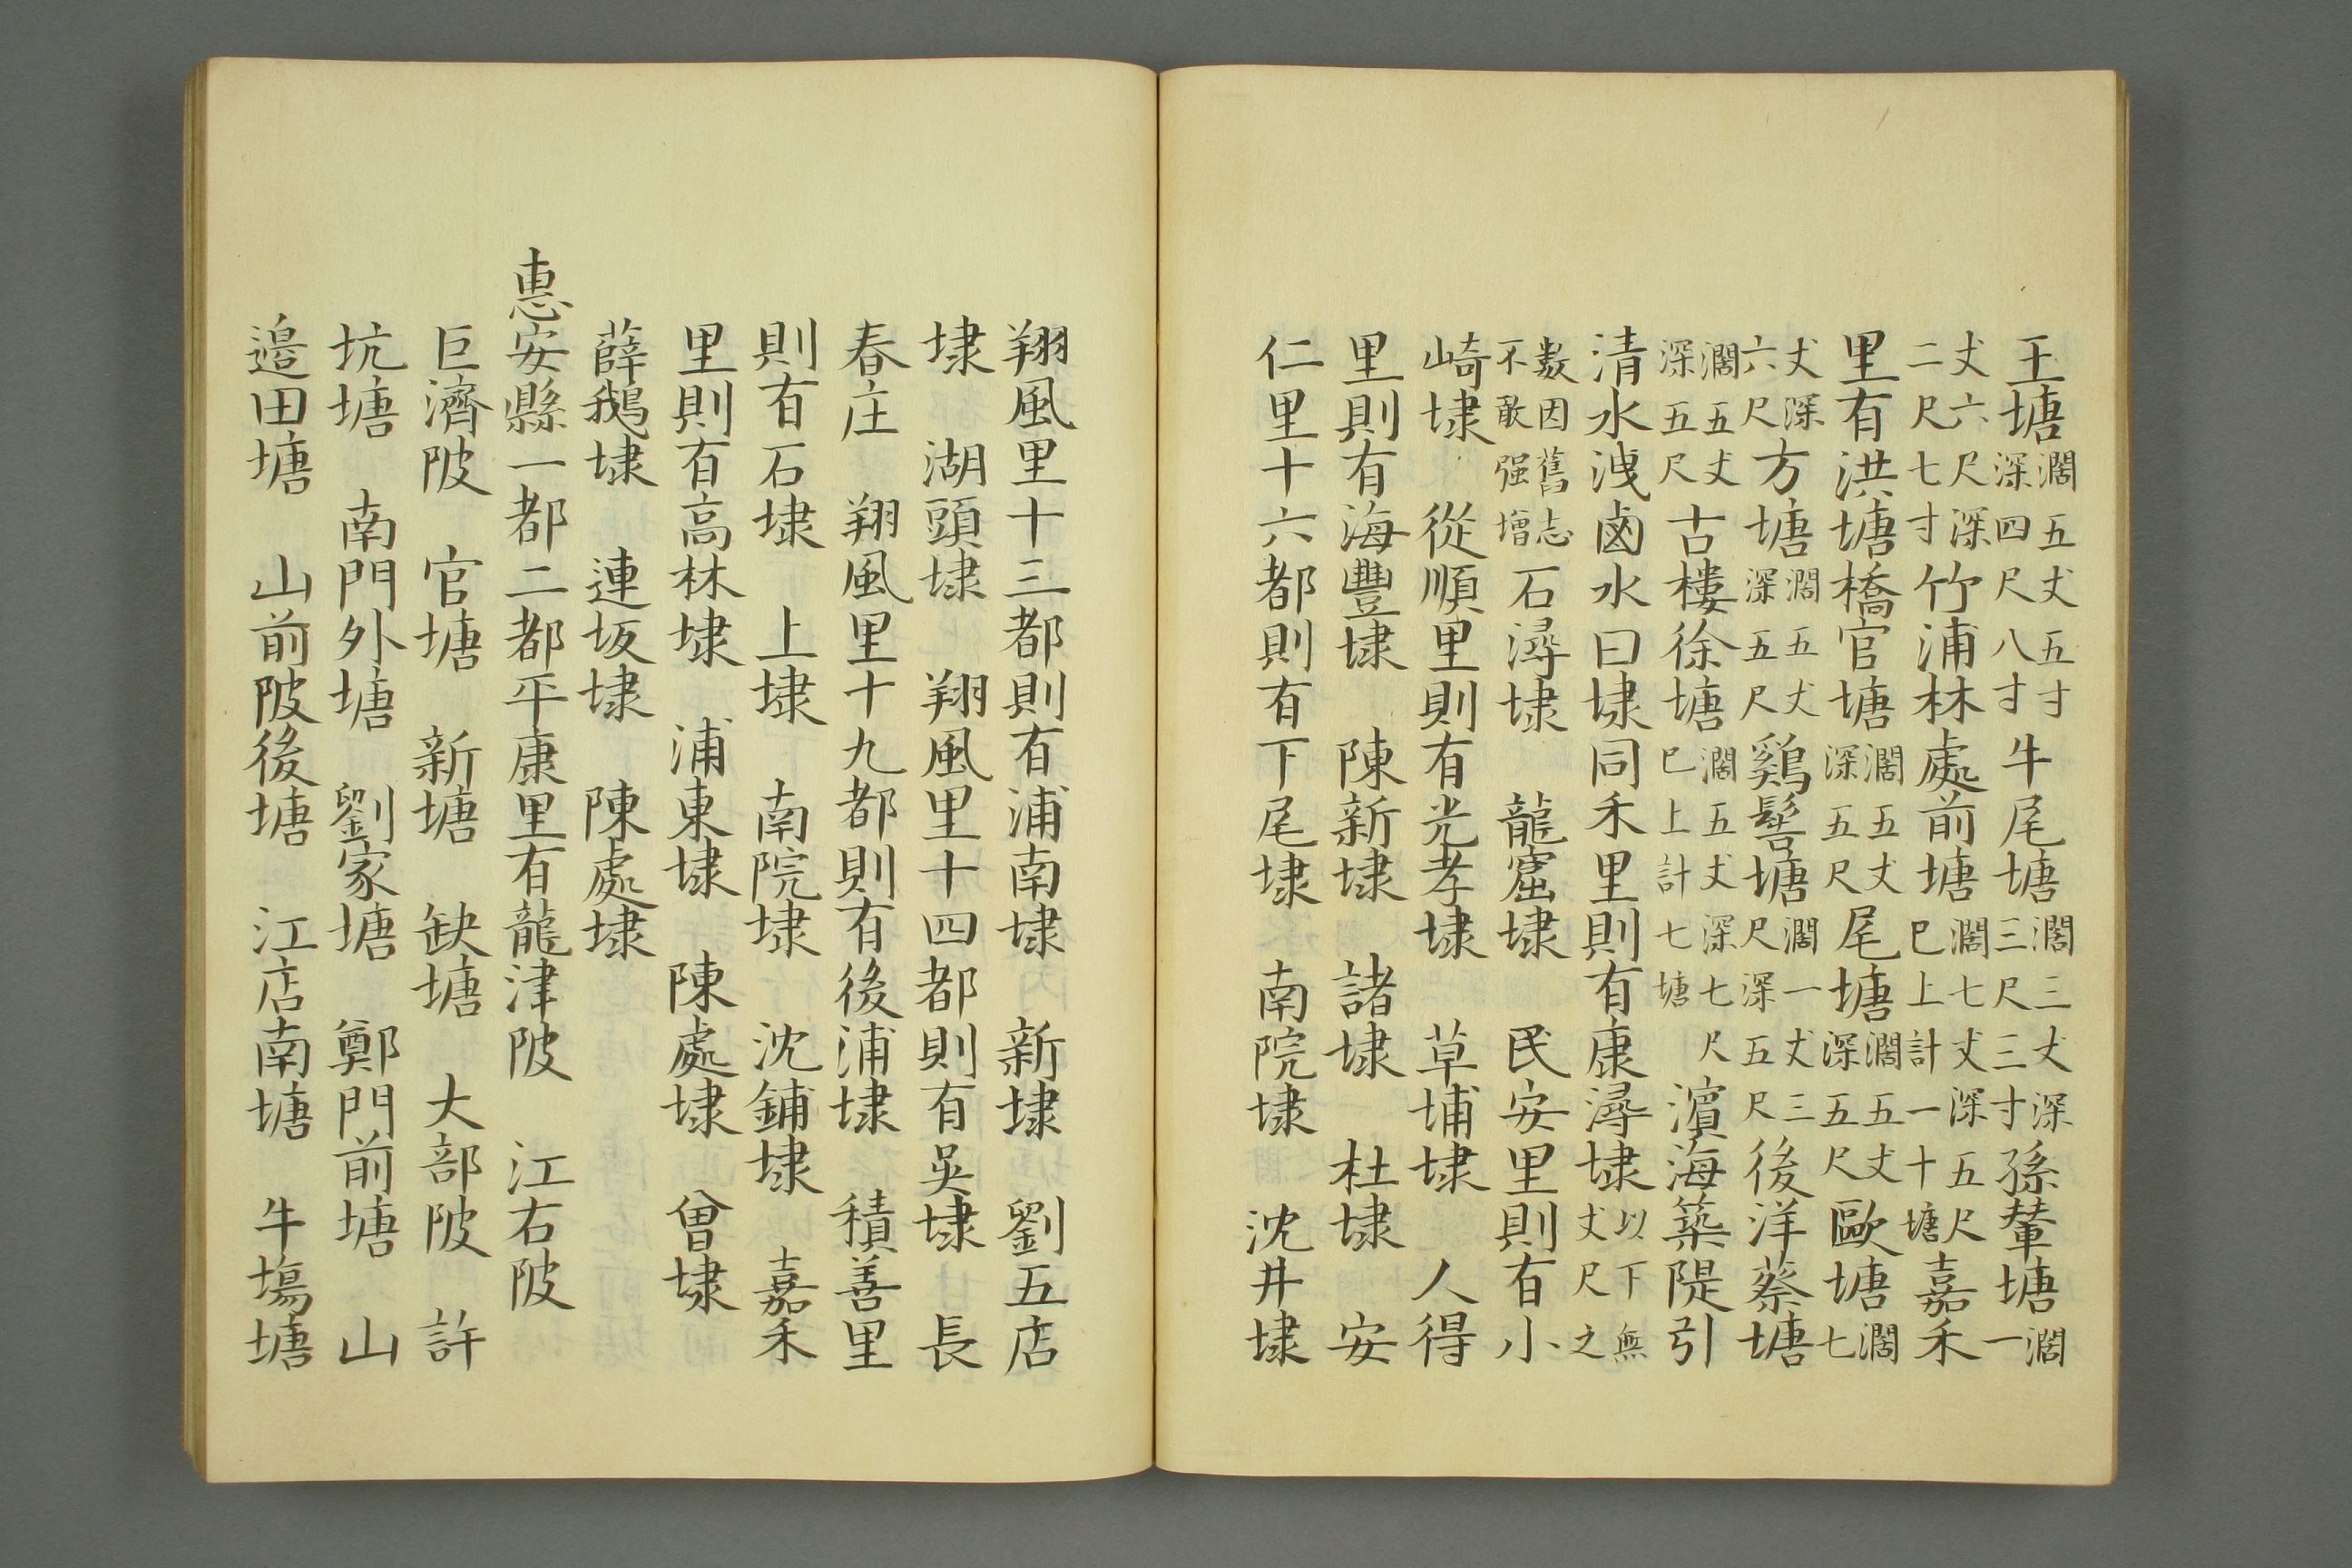 王塘濶五丈五寸深四尺八寸牛尾塘濶三丈深三尺三寸孫輦塘濶一
丈六尺深二尺七寸竹浦林處前塘濶七丈深五尺巳上計一十塘嘉禾
里有洪塘橋官塘濶五丈深五尺尾塘濶五丈深五尺歐塘濶七
丈深六尺方塘濶五丈深五尺鷄髻塘濶一丈三尺深五尺後洋蔡塘
濶五丈深五尺古樓徐塘濶五丈深七尺巳上計七塘 濵海築隄引
清水洩鹵水曰埭同禾里則有康潯埭以下無丈尺之
數因舊志不敢强增石潯埭 龍窟埭 民安里則有小
崎埭 從順里則有光孝埭 草埔埭 人得
里則有海豐埭 陳新埭 諸埭 杜埭 安
仁里十六都則有下尾埭 南院埭 沈井埭
翔風里十三都則有浦南埭 新埭 劉五店
埭 湖頭埭 翔風里十四都則有吳埭 長
春庄 翔風里十九都則有後浦埭 積善里
則有石埭 上埭 南院埭 沈鋪埭 嘉禾
里則有高林埭 浦東埭 陳處埭 曾埭
薛鵝埭 連坂埭 陳處埭
惠安縣一都二都平康里有龍津陂 江右陂
巨濟陂 官塘 新塘 缺塘 大部陂 許
坑塘 南門外塘 劉家塘 鄭門前塘 山
邉田塘 山前陂後塘 江店南塘 牛塲塘